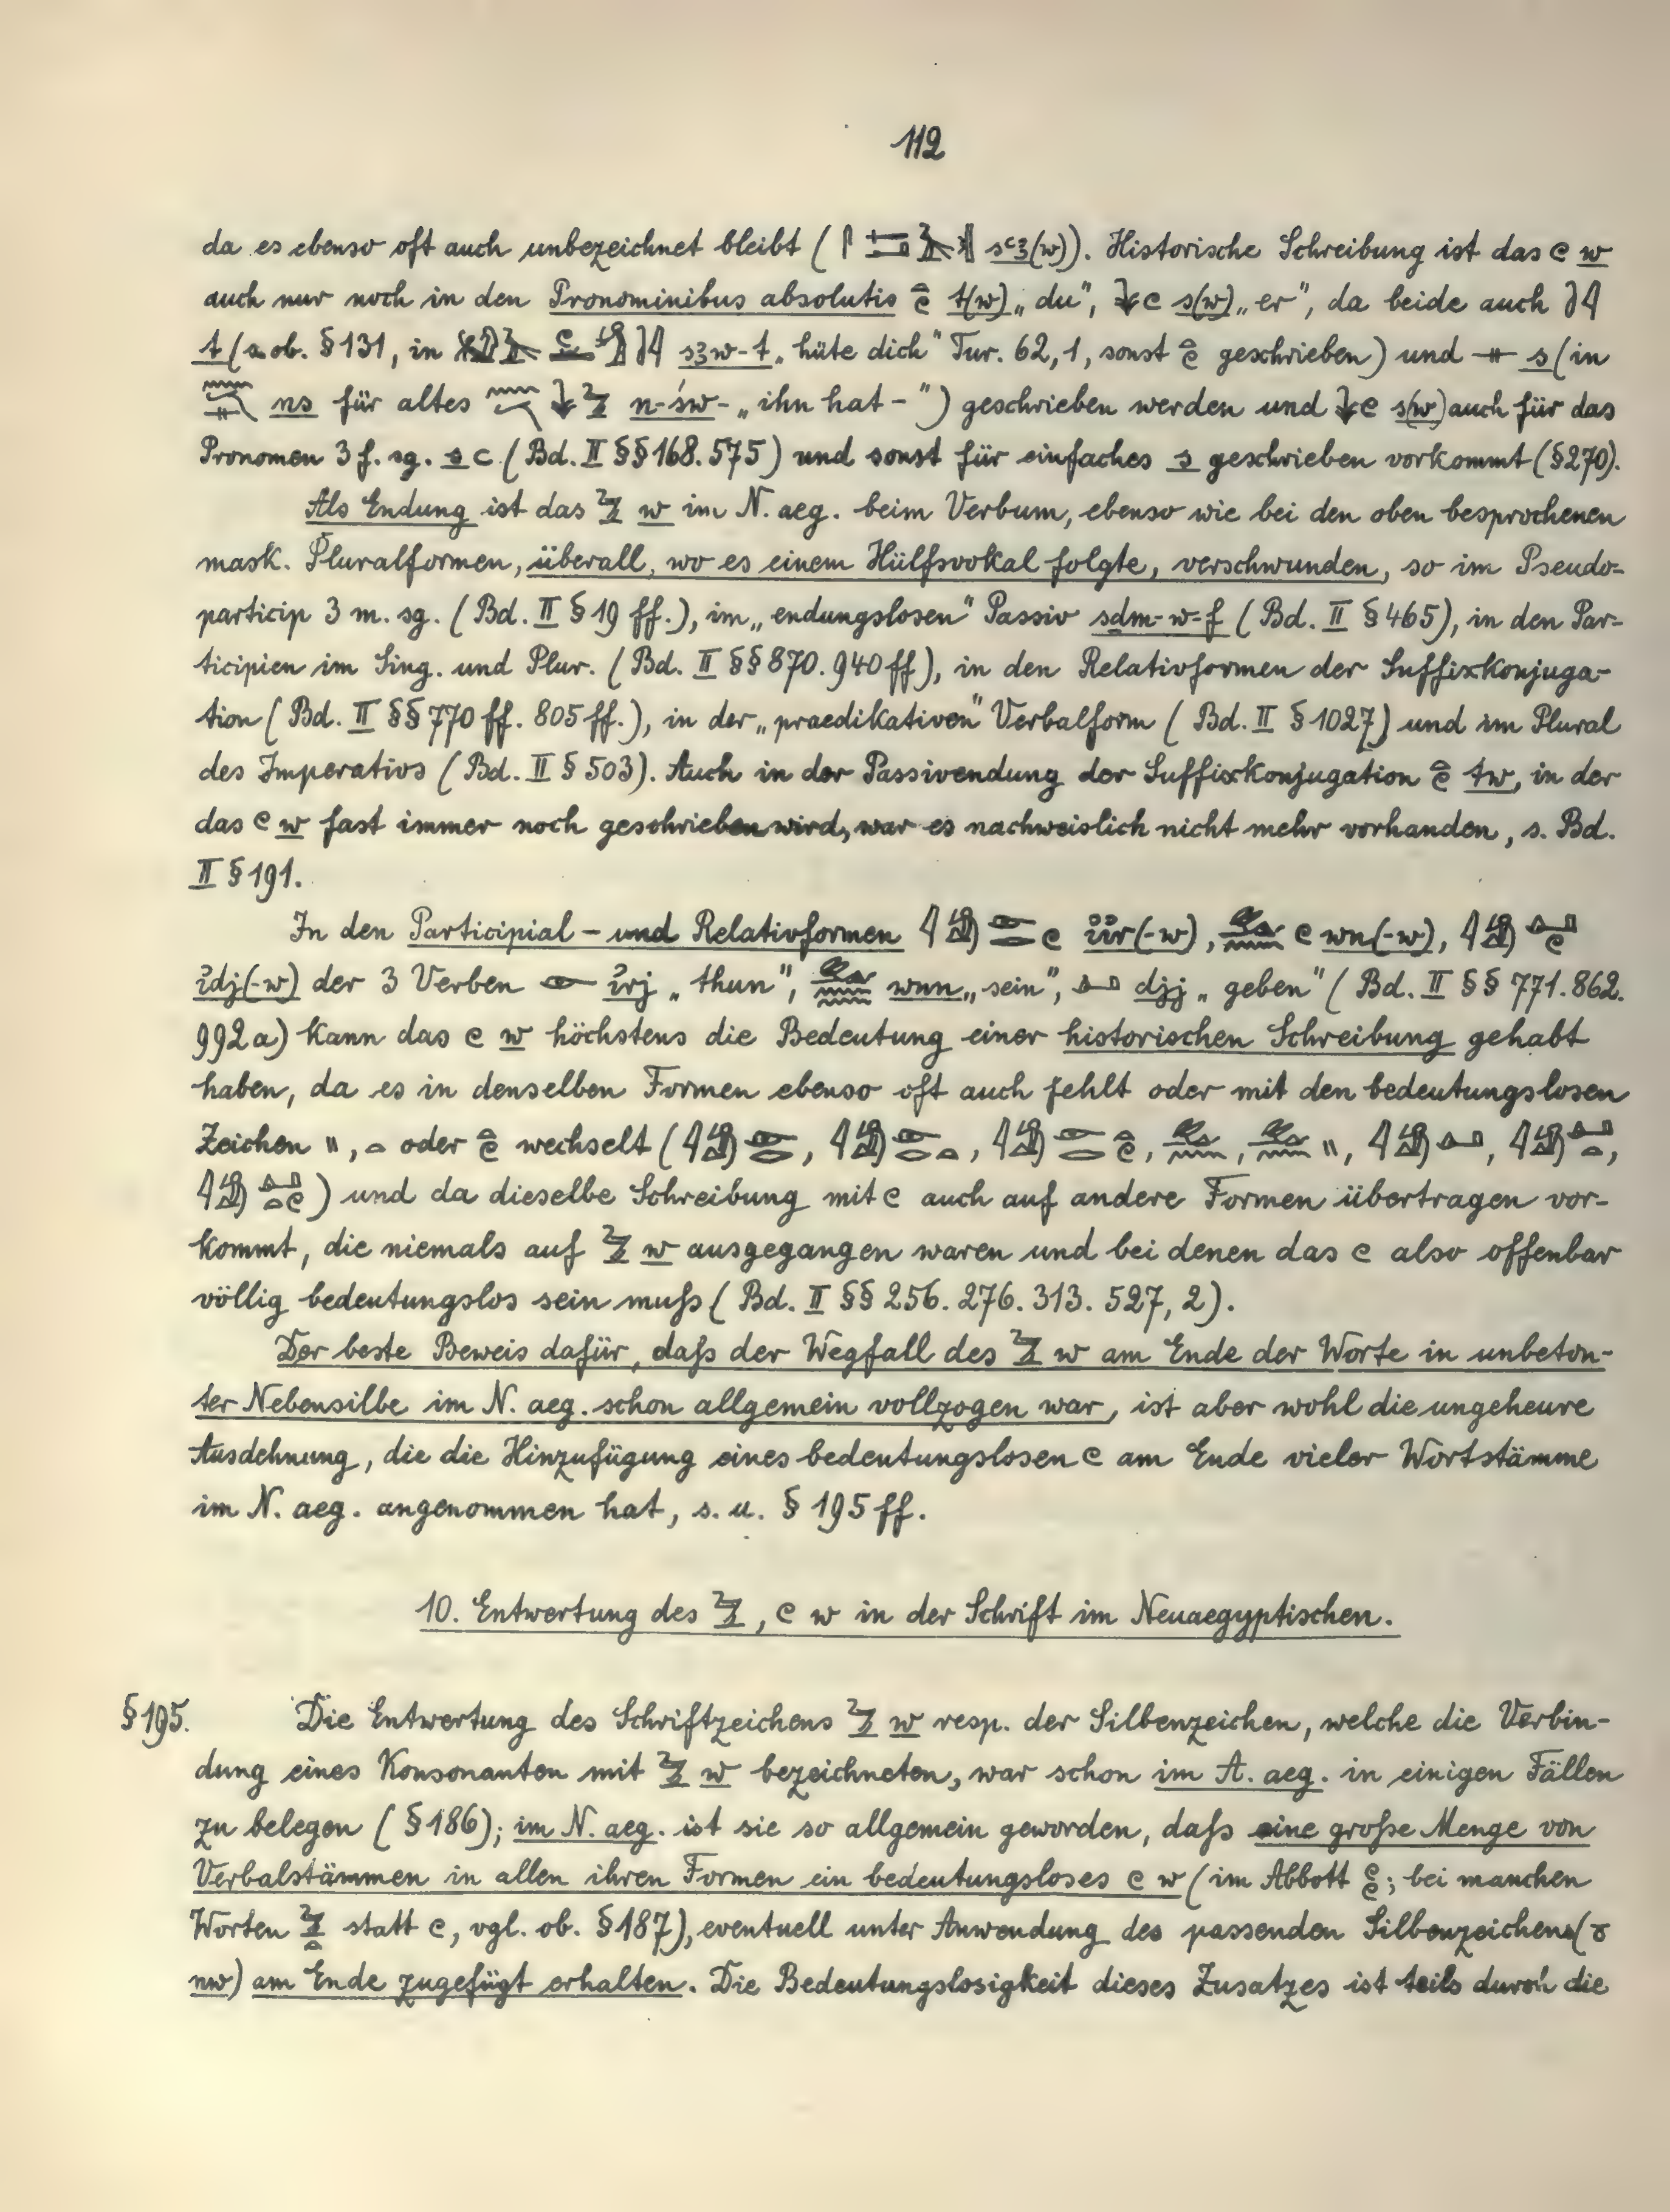 112
da es ebenso oft auch unbezeichnet bleibt ( sꜥꜣ(w)). Historische Schreibung ist das 𓏲 w
auch nur noch in den Pronominibus absolutis t(w) „du", s(w) „er", da beide auch
t (s. ob. § 131, in sꜣw-t „hüte dich" Tur. 62,1, sonst geschrieben) und s (in
ns für altes n-św- „ihn hat -") geschrieben werden und s(w) auch für das
Pronomen 3 f. sg. (Bd. II §§ 168. 575) und sonst für einfaches s geschrieben vorkommt (§ 270).
Als Endung ist das 𓅱 w im N. aeg. beim Verbum, ebenso wie bei den oben besprochenen
mask. Pluralformen, überall, wo es einem Hülfsvokal folgte, verschwunden, so im Pseudo-
particip 3 m. sg. (Bd. II § 19 ff.), im „endungslosen" Passiv sdm-w-f (Bd. II § 465), in den Par-
ticipien im Sing. und Plur. (Bd. II §§ 870. 940 ff), in den Relativformen der Suffixkonjuga-
tion (Bd. II §§ 770 ff. 805 ff.), in der „praedikativen" Verbalform (Bd. II § 1027) und im Plural
des Imperativs (Bd. II § 503). Auch in der Passivendung der Suffixkonjugation tw, in der
das 𓏲 w fast immer noch geschrieben wird, war es nachweislich nicht mehr vorhanden, s. Bd.
II § 191.
In den Participial- und Relativformen ı͗ı͗r(-w), wn(-w),
ı͗dj(-w) der 3 Verben ı͗rj „thun", wnn „sein", djj „geben" (Bd. II §§ 771. 862.
992a) kann das 𓏲 w höchstens die Bedeutung einer historischen Schreibung gehabt
haben, da es in denselben Formen ebenso oft auch fehlt oder mit den bedeutungslosen
Zeichen 𓏭, 𓏏 oder wechselt (
) und da dieselbe Schreibung mit 𓏲 auch auf andere Formen übertragen vor-
kommt, die niemals auf 𓅱 w ausgegangen waren und bei denen das 𓏲 also offenbar
völlig bedeutungslos sein muſs (Bd. II §§ 256. 276. 313. 527, 2).
Der beste Beweis dafür, daſs der Wegfall des 𓅱 w am Ende der Worte in unbeton-
ter Nebensilbe im N. aeg. schon allgemein vollzogen war, ist aber wohl die ungeheure
Ausdehnung, die die Hinzufügung eines bedeutungslosen 𓏲 am Ende vieler Wortstämme
im N. aeg. angenommen hat, s. u. § 195 ff.
10. Entwertung des 𓅱, 𓏲 w in der Schrift im Neuaegyptischen.
§ 195. Die Entwertung des Schriftzeichens 𓅱 w resp. der Silbenzeichen, welche die Verbin-
dung eines Konsonanten mit 𓅱 w bezeichneten, war schon im A. aeg. in einigen Fällen
zu belegen (§ 186); im N. aeg. ist sie so allgemein geworden, daſs eine groſse Menge von
Verbalstämmen in allen ihren Formen ein bedeutungsloses 𓏲 w (im Abbott ; bei manchen
Worten statt 𓏲, vgl. ob. § 187), eventuell unter Anwendung des passenden Silbenzeichens (𓏌
nw) am Ende zugefügt erhalten. Die Bedeutungslosigkeit dieses Zusatzes ist teils durch die